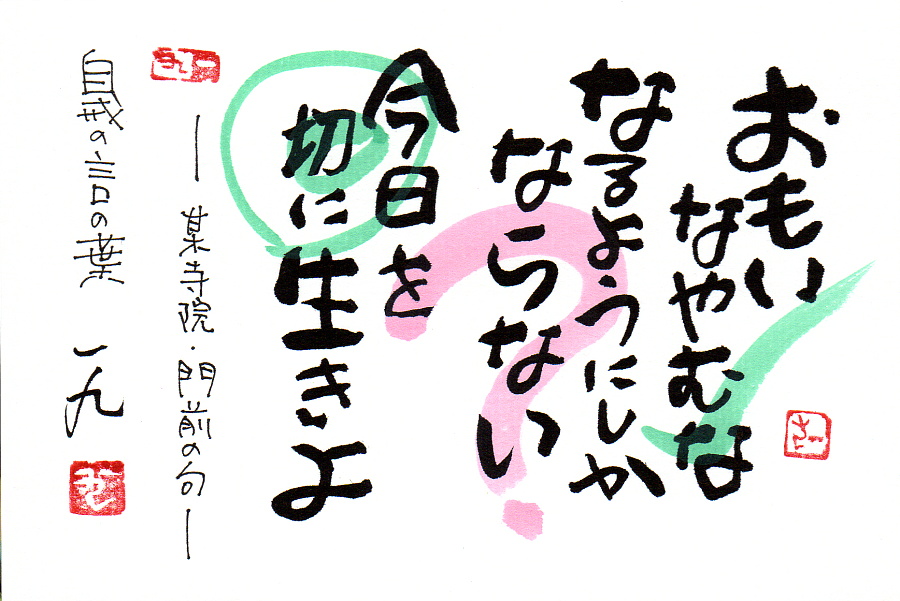 おもい
なやむな
なるようにしか
ならない
今日を
切に生きよ
―某寺院・門前の句―
自戒の言の葉 一九